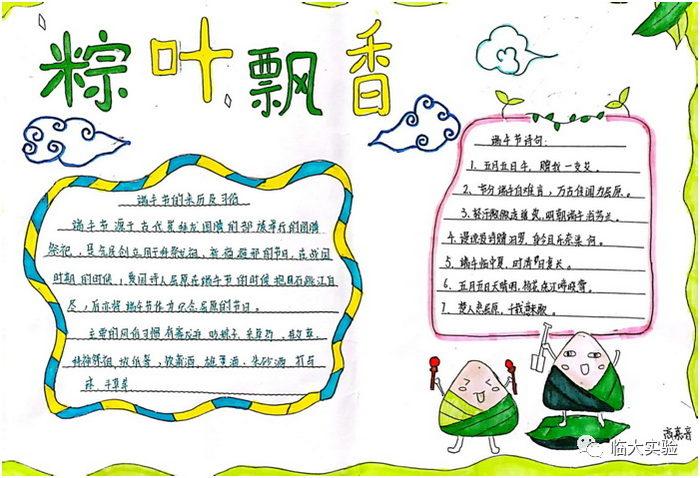 粽叶飘香
端午节的来历及习俗
端午节源于古代崇拜龙图腾的部族举行的图腾
祭祀，是先民创立用于拜祭龙祖、祈福辟邪的节日。在战国
时期的时候，爱国诗人屈原在端午节的时候抱石跳江自
尽，后亦将端午节作为纪念屈原的节日。
主要的风俗习惯有赛龙舟、吃粽子
饮菖酒、雄黄酒、朱砂酒
端午节诗句：
1. 五月五日午，赠我一支艾。
2. 节分端午自谁言，万古传闻为屈原。
3. 轻汗微微透碧纨，明朝端午浴芳兰。
4. 谩说投诗赠汨罗，身今且乐奈渠何。
5. 端午临中夏，时清日复长。
6. 五月五日天晴明，杨花绕江啼晓莺。
7. 楚人悲屈原，千载意未歇。
临大实验